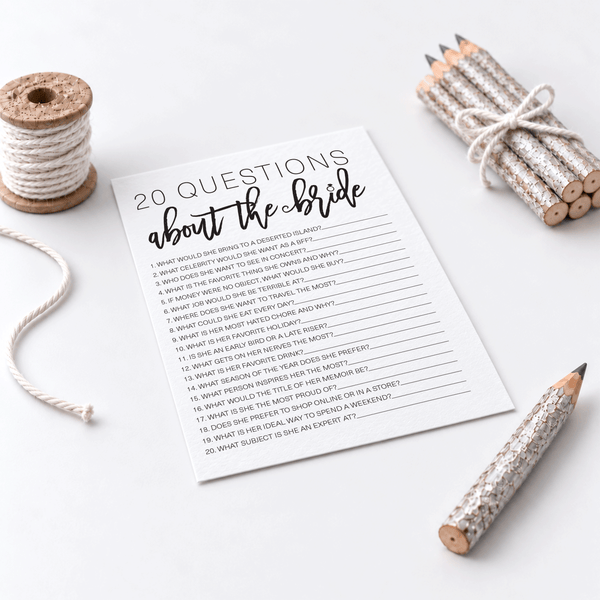 20 QUESTIONS
about the bride
1. WHAT WOULD SHE BRING TO A DESERTED ISLAND?
2. WHAT CELEBRITY WOULD SHE WANT AS A BFF?
3. WHO DOES SHE WANT TO SEE IN CONCERT?
4. WHAT IS THE FAVORITE THING SHE OWNS AND WHY?
5. IF MONEY WERE NO OBJECT, WHAT WOULD SHE BUY?
6. WHAT JOB WOULD SHE BE TERRIBLE AT?
7. WHERE DOES SHE WANT TO TRAVEL THE MOST?
8. WHAT COULD SHE EAT EVERY DAY?
9. WHAT IS HER MOST HATED CHORE AND WHY?
10. WHAT IS HER FAVORITE HOLIDAY?
11. IS SHE AN EARLY BIRD OR A LATE RISER?
12. WHAT GETS ON HER NERVES THE MOST?
13. WHAT IS HER FAVORITE DRINK?
14. WHAT SEASON OF THE YEAR DOES SHE PREFER?
15. WHAT PERSON INSPIRES HER THE MOST?
16. WHAT WOULD THE TITLE OF HER MEMOIR BE?
17. WHAT IS SHE THE MOST PROUD OF?
18. DOES SHE PREFER TO SHOP ONLINE OR IN A STORE?
19. WHAT IS HER IDEAL WAY TO SPEND A WEEKEND?
20. WHAT SUBJECT IS SHE AN EXPERT AT?